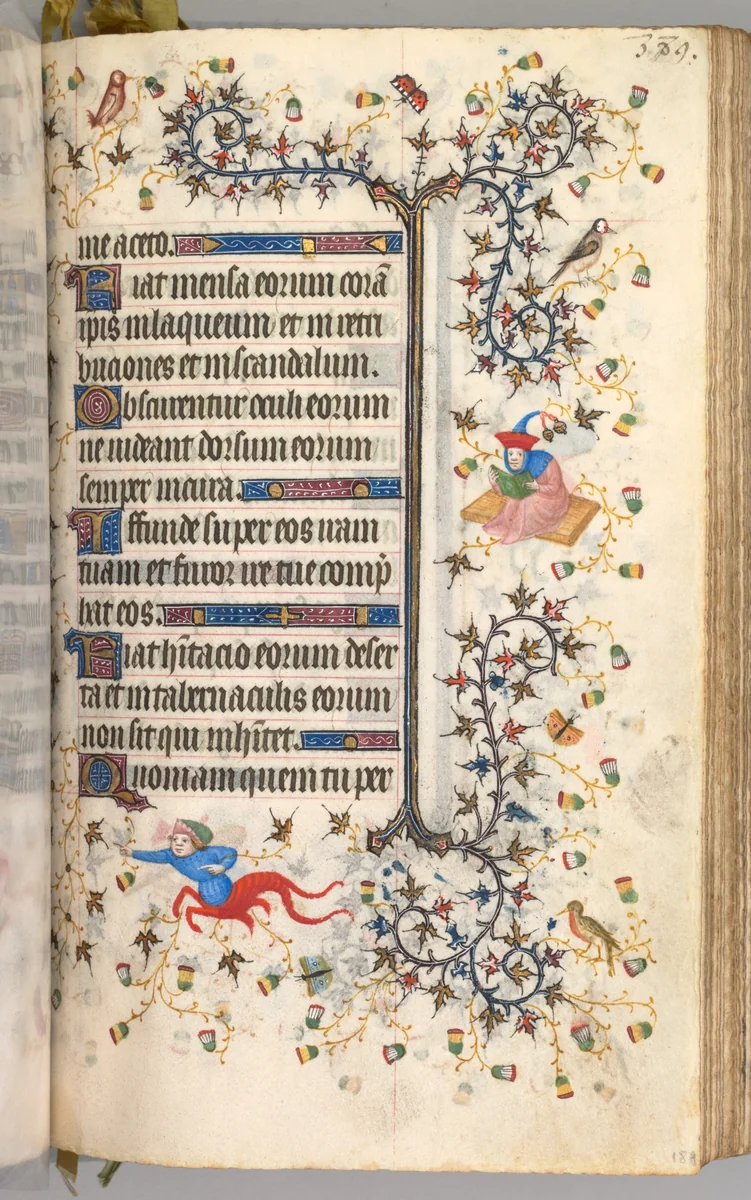 me aceto.
Fiat mensa eorum corā
ipis in laqueum et in retri
buciones et in scandalum.
Obscurentur oculi eorum
ne uideant dorsum eorum
semper incura.
Effunde super eos iram
tuam et furor ire tue comp̄
hat eos.
Fiat hītacio eorum deser
ta et in tabernaculis eorum
non sit qui inhītet.
Quoniam quem tu per
188